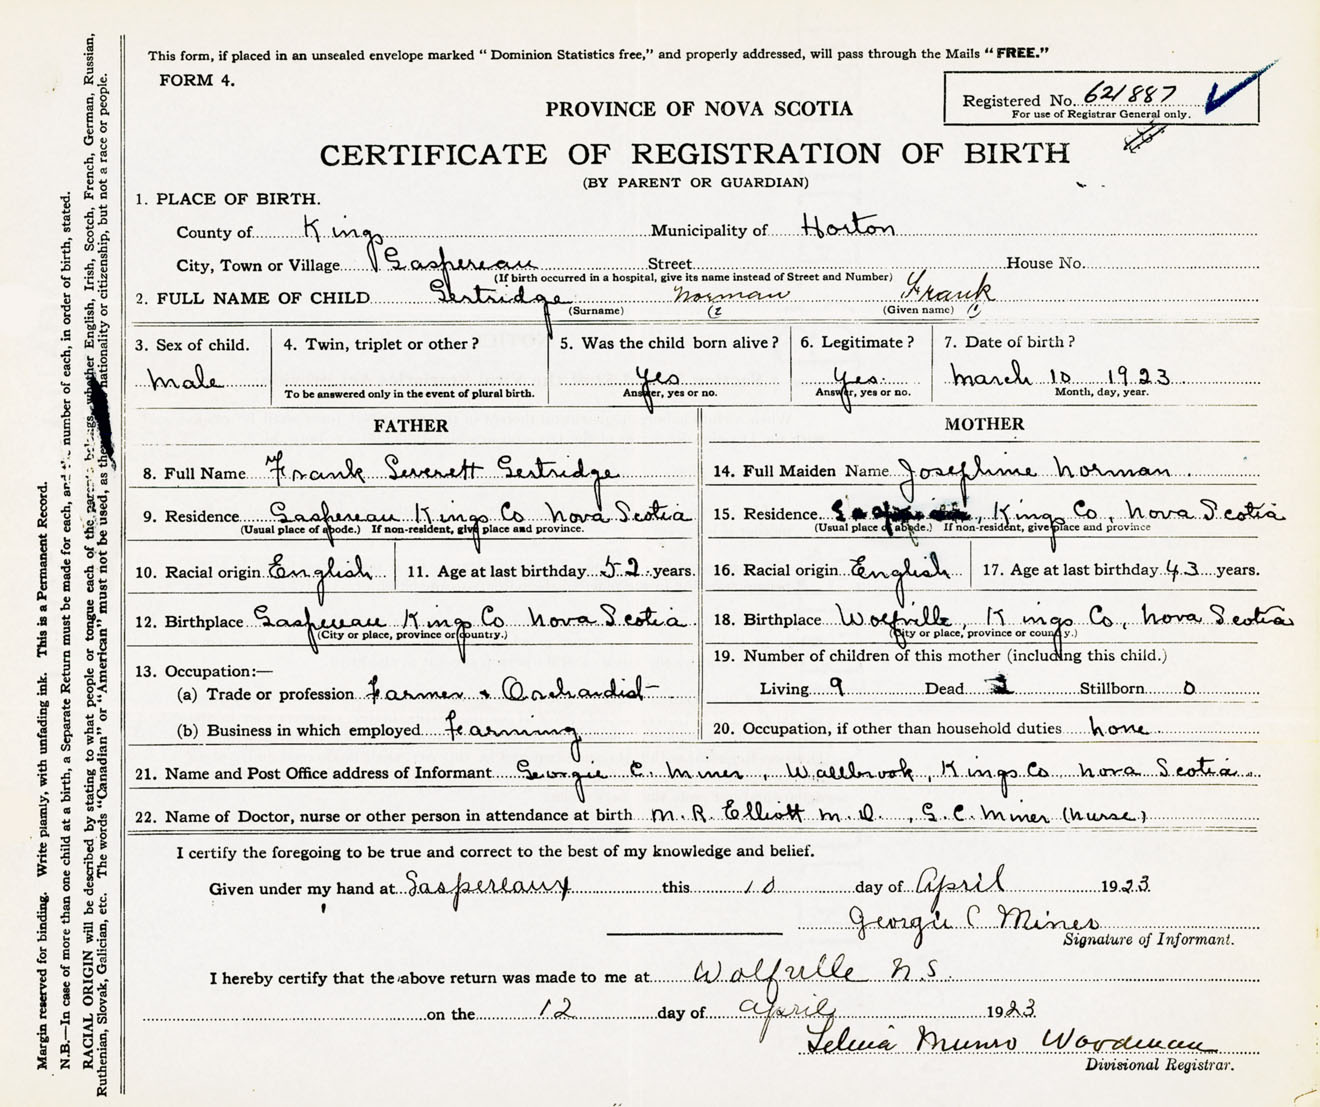 This form, if placed in an unsealed envelope marked “ Dominion Statistics free,” and properly addressed, will pass through the Mails “ FREE.”
FORM 4.
Registered No. 621887
For use of Registrar General only.
PROVINCE OF NOVA SCOTIA
CERTIFICATE OF REGISTRATION OF BIRTH
(BY PARENT OR GUARDIAN)
1. PLACE OF BIRTH.
County of Kings Municipality of Horton
City, Town or Village Gaspereau Street House No.
(If birth occurred in a hospital, give its name instead of Street and Number)
2. FULL NAME OF CHILD Gertridge Norman Frank
(Surname) (2 (Given name) (1)
3. Sex of child. 4. Twin, triplet or other? 5. Was the child born alive? 6. Legitimate? 7. Date of birth?
Male Yes Yes. March 10 1923
To be answered only in the event of plural birth. Answer, yes or no. Answer, yes or no. Month, day, year.
FATHER
8. Full Name Frank Everett Gertridge
9. Residence Gaspereau Kings Co Nova Scotia
(Usual place of abode.) If non-resident, give place and province.
10. Racial origin English 11. Age at last birthday 52 years.
12. Birthplace Gaspereau Kings Co Nova Scotia
(City or place, province or country.)
13. Occupation:—
(a) Trade or profession Farmer & Orchardist
(b) Business in which employed Farming
MOTHER
14. Full Maiden Name Josephine Norman
15. Residence , Kings Co, Nova Scotia
(Usual place of abode.) If non-resident, give place and province
16. Racial origin English 17. Age at last birthday 43 years.
18. Birthplace Wolfville, Kings Co, Nova Scotia
(City or place, province or country.)
19. Number of children of this mother (including this child.)
Living 9 Dead Stillborn 0
20. Occupation, if other than household duties None
21. Name and Post Office address of Informant Georgie C. Miner, Wallbrook, Kings Co Nova Scotia
22. Name of Doctor, nurse or other person in attendance at birth M. R. Elliott M. D. , G. C. Miner (Nurse)
I certify the foregoing to be true and correct to the best of my knowledge and belief.
Given under my hand at Gaspereaux this 10 day of April 1923
Georgie C Miner
Signature of Informant.
I hereby certify that the above return was made to me at Wolfville N.S.
on the 12 day of April 1923
Munro Woodman
Divisional Registrar.
Margin reserved for binding. Write plainly, with unfading ink. This is a Permanent Record.
N.B.—In case of more than one child at a birth, a Separate Return must be made for each, and the number of each, in order of birth, stated.
RACIAL ORIGIN will be described by stating to what people or tongue each of the parents belongs, whether English, Irish, Scotch, French, German, Russian,
Ruthenian, Slovak, Galician, etc. The words “Canadian” or “American” must not be used, as they nationality or citizenship, but not a race or people.